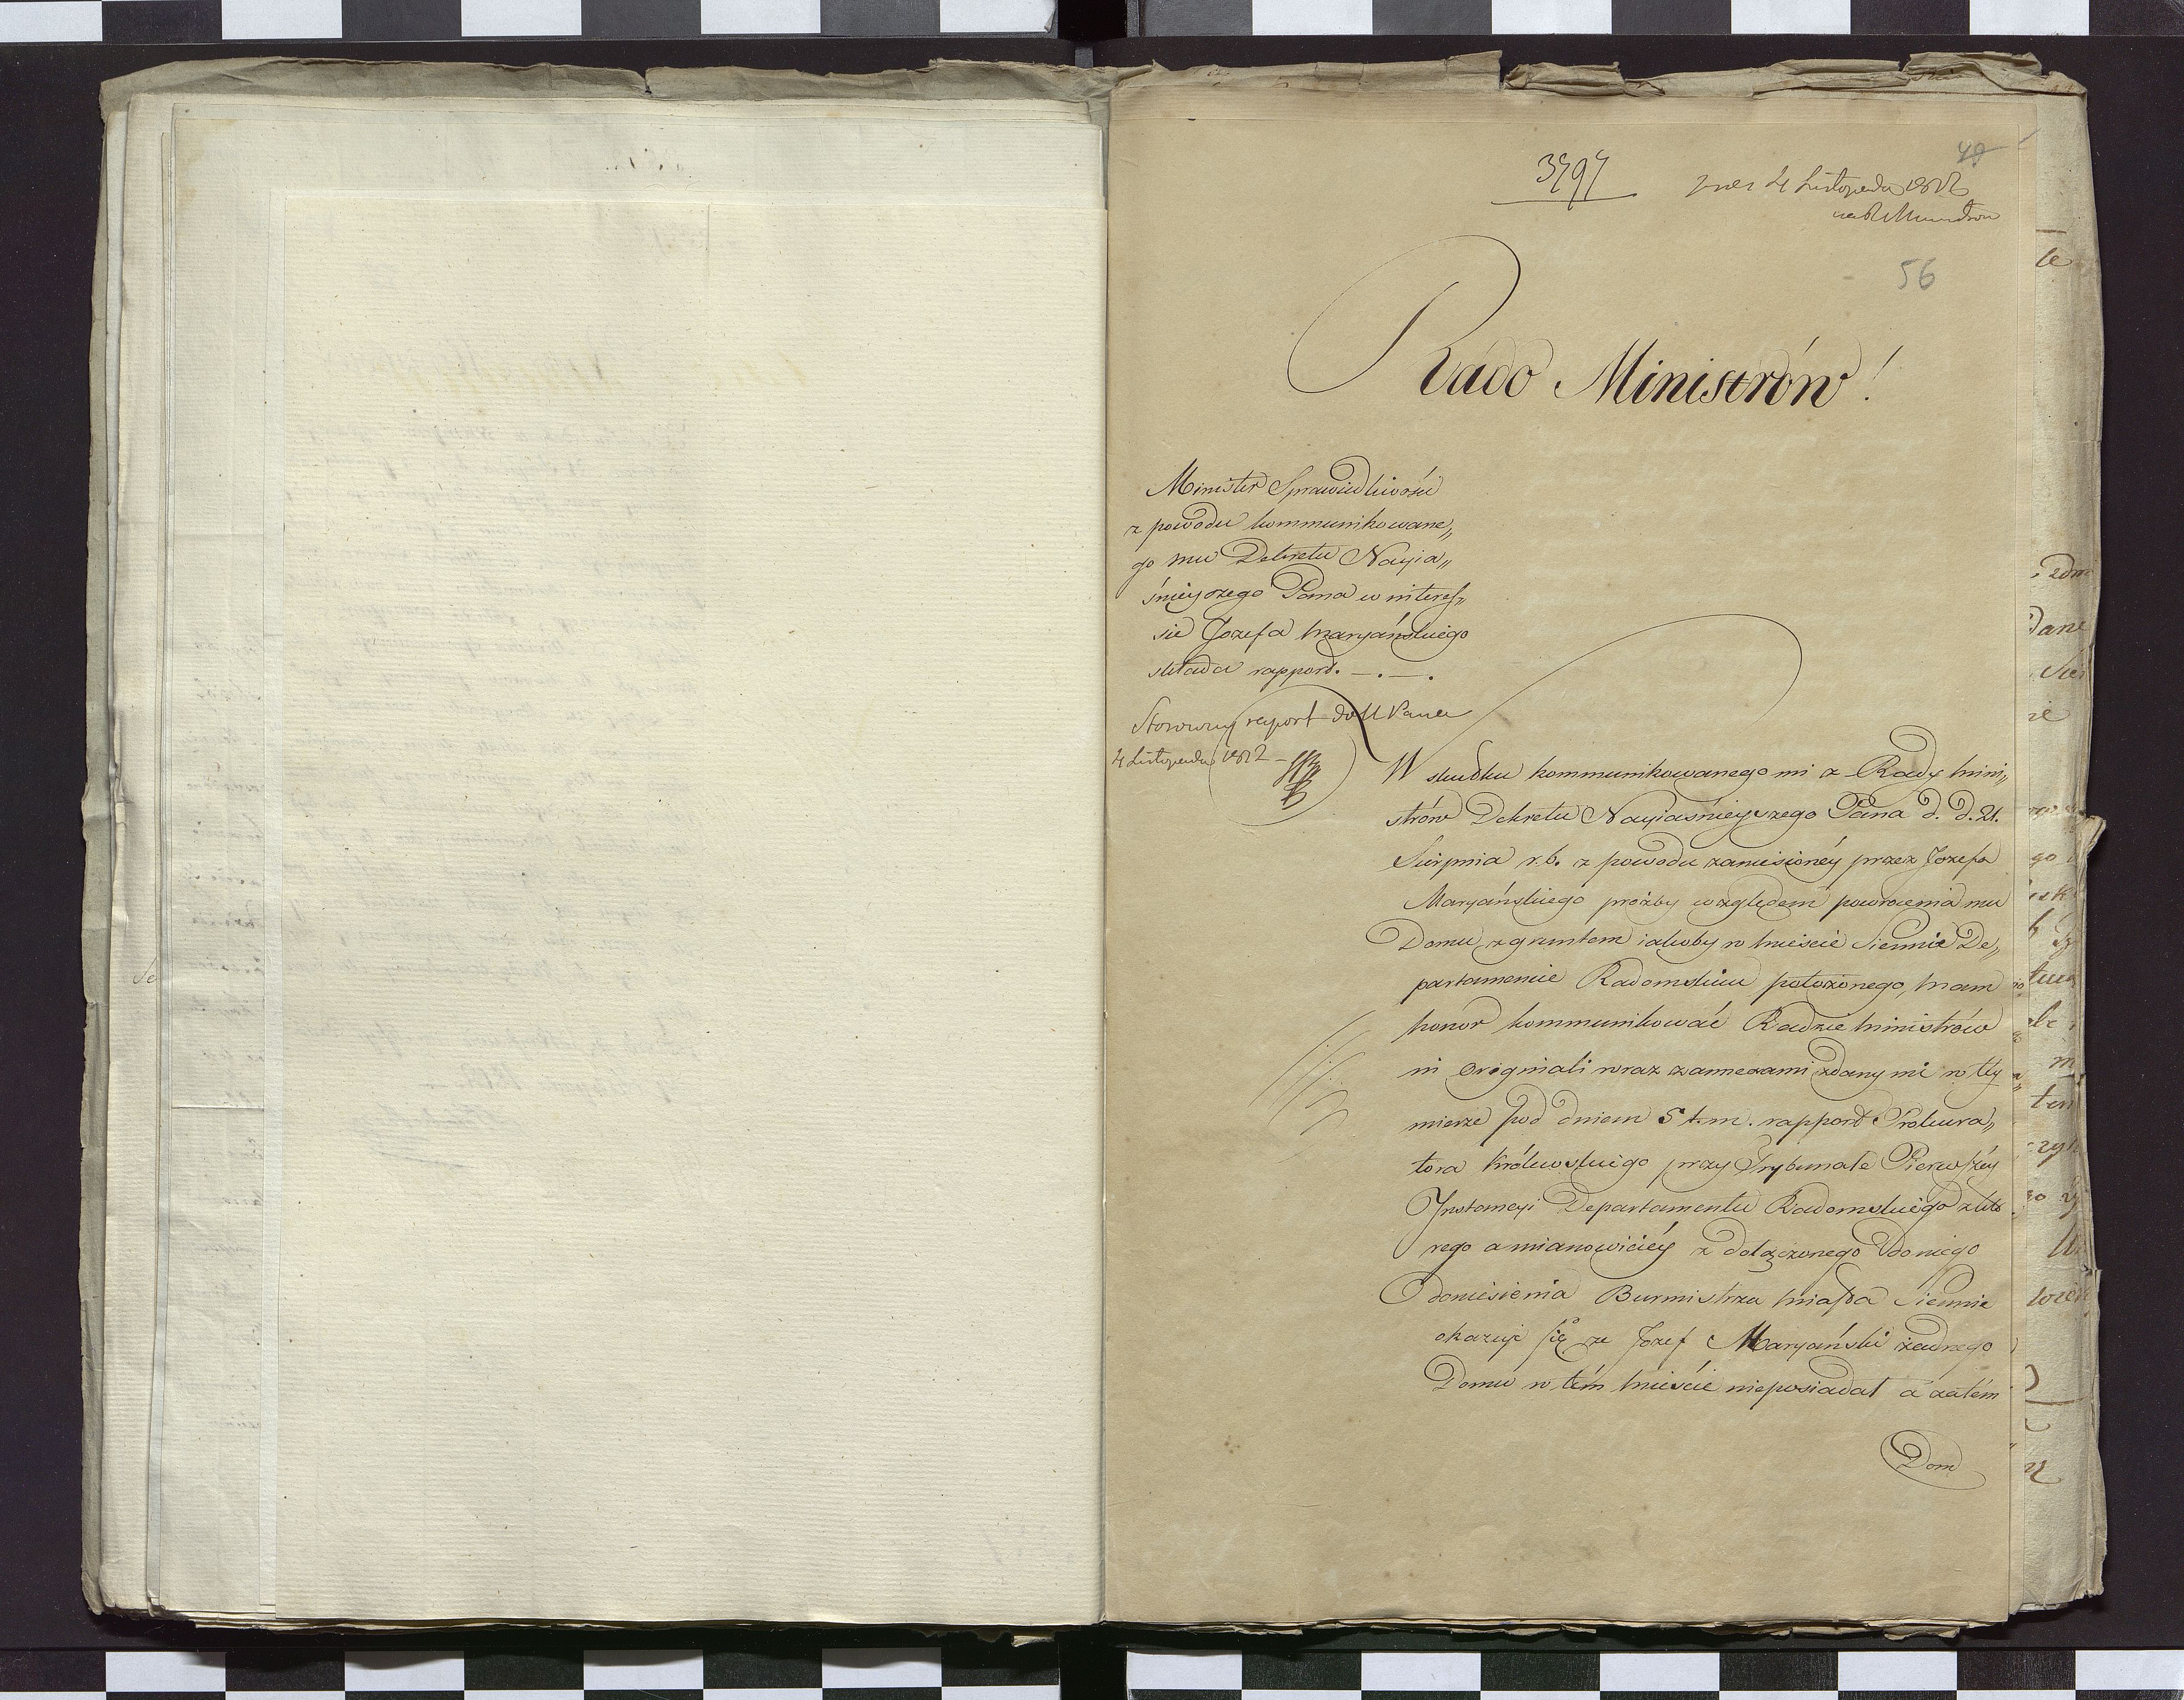 3797
4 Listopada 1812
56
Rado Ministrów!
Minister Sprawiedliwości
z powodu kommunikowane„
go mu Dekretu Nayia„
śnieyszego Pana w interes„
sie Jozefa Maryańskiego
składa rapport. —.—.
Stosowny raport do N Pana
4 Listopada 1812 —
W skutku kommunikowanego mi z Rady Mini„
strów Dekretu Nayiaśnieyszego Pana d. d. 21.
Sierpnia r. b. z powodu zaniesionéy przez Jozefa
Maryańskiego prożby względem powrocenia mu
Domu z gruntem iakoby w Mieście Siennie De„
partamencie Radomskim położonego, mam
honor kommunikować Radzie Ministrów
in Originali wraz z annexami zdany mi w tey
mierze pod dniem 5 t. m. rapport Prokura„
tora Królewskiego przy Trybunale Pierwszéy
Instancyi Departamentu Radomskiego z któ
rego a mianowiciey z dołączonego do niego
doniesienia Burmistrza Miasta Sienna
okazuje się że Jozef Maryański żadnego
Domu w tém Mieście nieposiadał a zatém
Dom